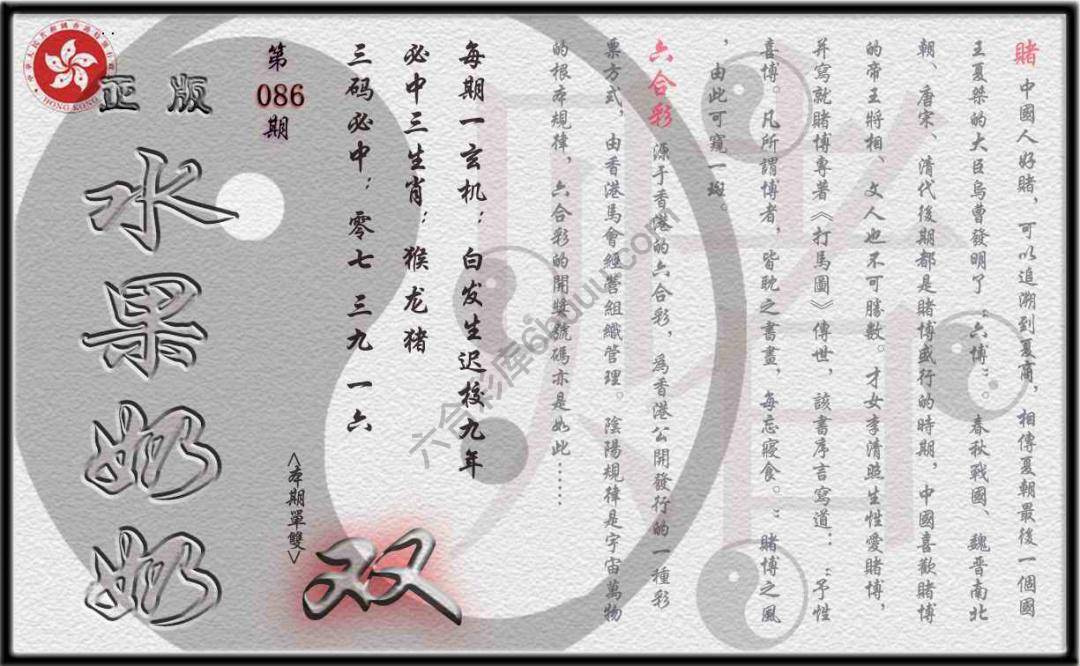 賭 中國人好賭，可以追溯到夏商，相傳夏朝最後一個國
王夏桀的大臣烏曹發明了〝六博〞。春秋戰國、魏晉南北
朝、唐宋、清代後期都是賭博盛行的時期，中國喜歡賭博
的帝王將相、文人也不可勝數。才女李清照生性愛賭博，
并寫就賭博專著《打馬圖》傳世，該書序言寫道：〝予性
喜博。凡所謂博者，皆耽之晝晝，每忘寢食。〞賭博之風
，由此可窺一斑。
六合彩 源于香港的六合彩，爲香港公開發行的一種彩
票方式，由香港馬會經營組織管理。陰陽規律是宇宙萬物
的根本規律，六合彩的開獎號碼亦是如此……
每期一玄机：白发生迟校九年
必中三生肖：猴龙猪
三码必中：零七 三九 一六
第
086
期
<本期單雙>
双
正版
水果奶奶
HONG KONG
六合彩库66uuu.com